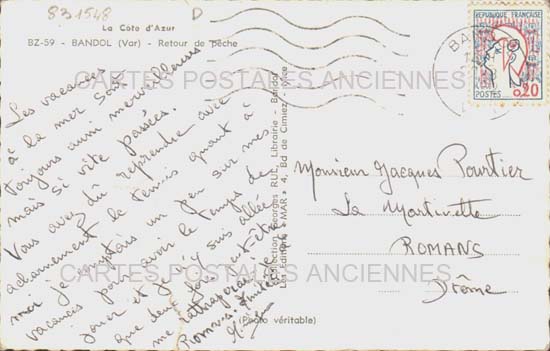 831548 D
La Côte d'Azur
BZ-59 - BANDOL (Var) - Retour de pêche
Les vacances
à la mer sont
toujours aussi merveilleuses
mais si vite passées.
Vous avez dû reprendre avec
acharnement le tennis quant à
moi je comptais un peu sur mes
vacances pour avoir le temps de
jouer et je n'y suis allée
que deux fois peut-être
me rattraperai-je à
Romans. Amitiés
Collection Georges RUC, Librairie - Bandol
La Editions "MAR" 4, Bd de Cimiez, Nice
(Photo véritable)
BAN
REPUBLIQUE FRANÇAISE
POSTES 0,20
Monsieur Jacques Pourtier
La Martinette
ROMANS
Drôme
CARTES POSTALES ANCIENNES
CARTES POSTALES ANCIENNES